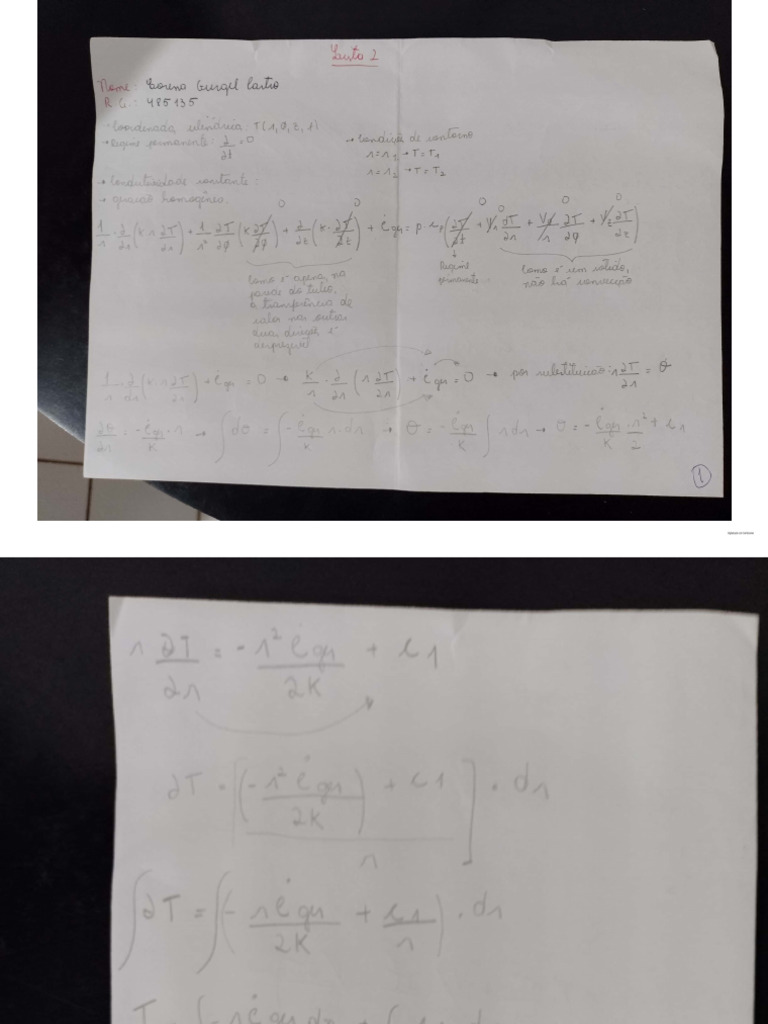 Santo 2
Nome: Lorena Gurgel Castro
R.G.: 485135
· Coordenada cilíndrica: T(r, θ, z, t)
→ Regime permanente: ∂/∂t = 0
→ Condição de contorno
r = r1 → T = T1
r = r2 → T = T2
→ Condutividade constante:
→ geração homogênea
0 0 0 0 0 0
1/r · ∂/∂r (k r ∂T/∂r) + 1/r² ∂T/∂φ (k ∂T/∂φ) + ∂/∂z (k · ∂T/∂z) + ėger = ρ cp (∂T/∂t + Vr ∂T/∂r + Vφ/r · ∂T/∂φ + Vz ∂T/∂z)
Como é apenas na
parede do tubo,
a transferência de
calor nas outras
duas direções é
desprezível
Regime
permanente
Como é um sólido,
não há convecção
1/r · ∂/∂r (k r ∂T/∂r) + ėger = 0 → k/r · ∂/∂r (r ∂T/∂r) + ėger = 0 → por substituição: r ∂T/∂r = θ
∂θ/∂r = - ėger/k · r → ∫dθ = ∫ - ėger/k r · dr → θ = - ėger/k ∫ r dr → θ = - ėger/k · r²/2 + c1
1
r ∂T/∂r = - r² ėger/2k + c1
∂T = [(- r² ėger/2k) + c1]/r · dr
∫∂T = ∫(- r ėger/2k + c1/r) · dr